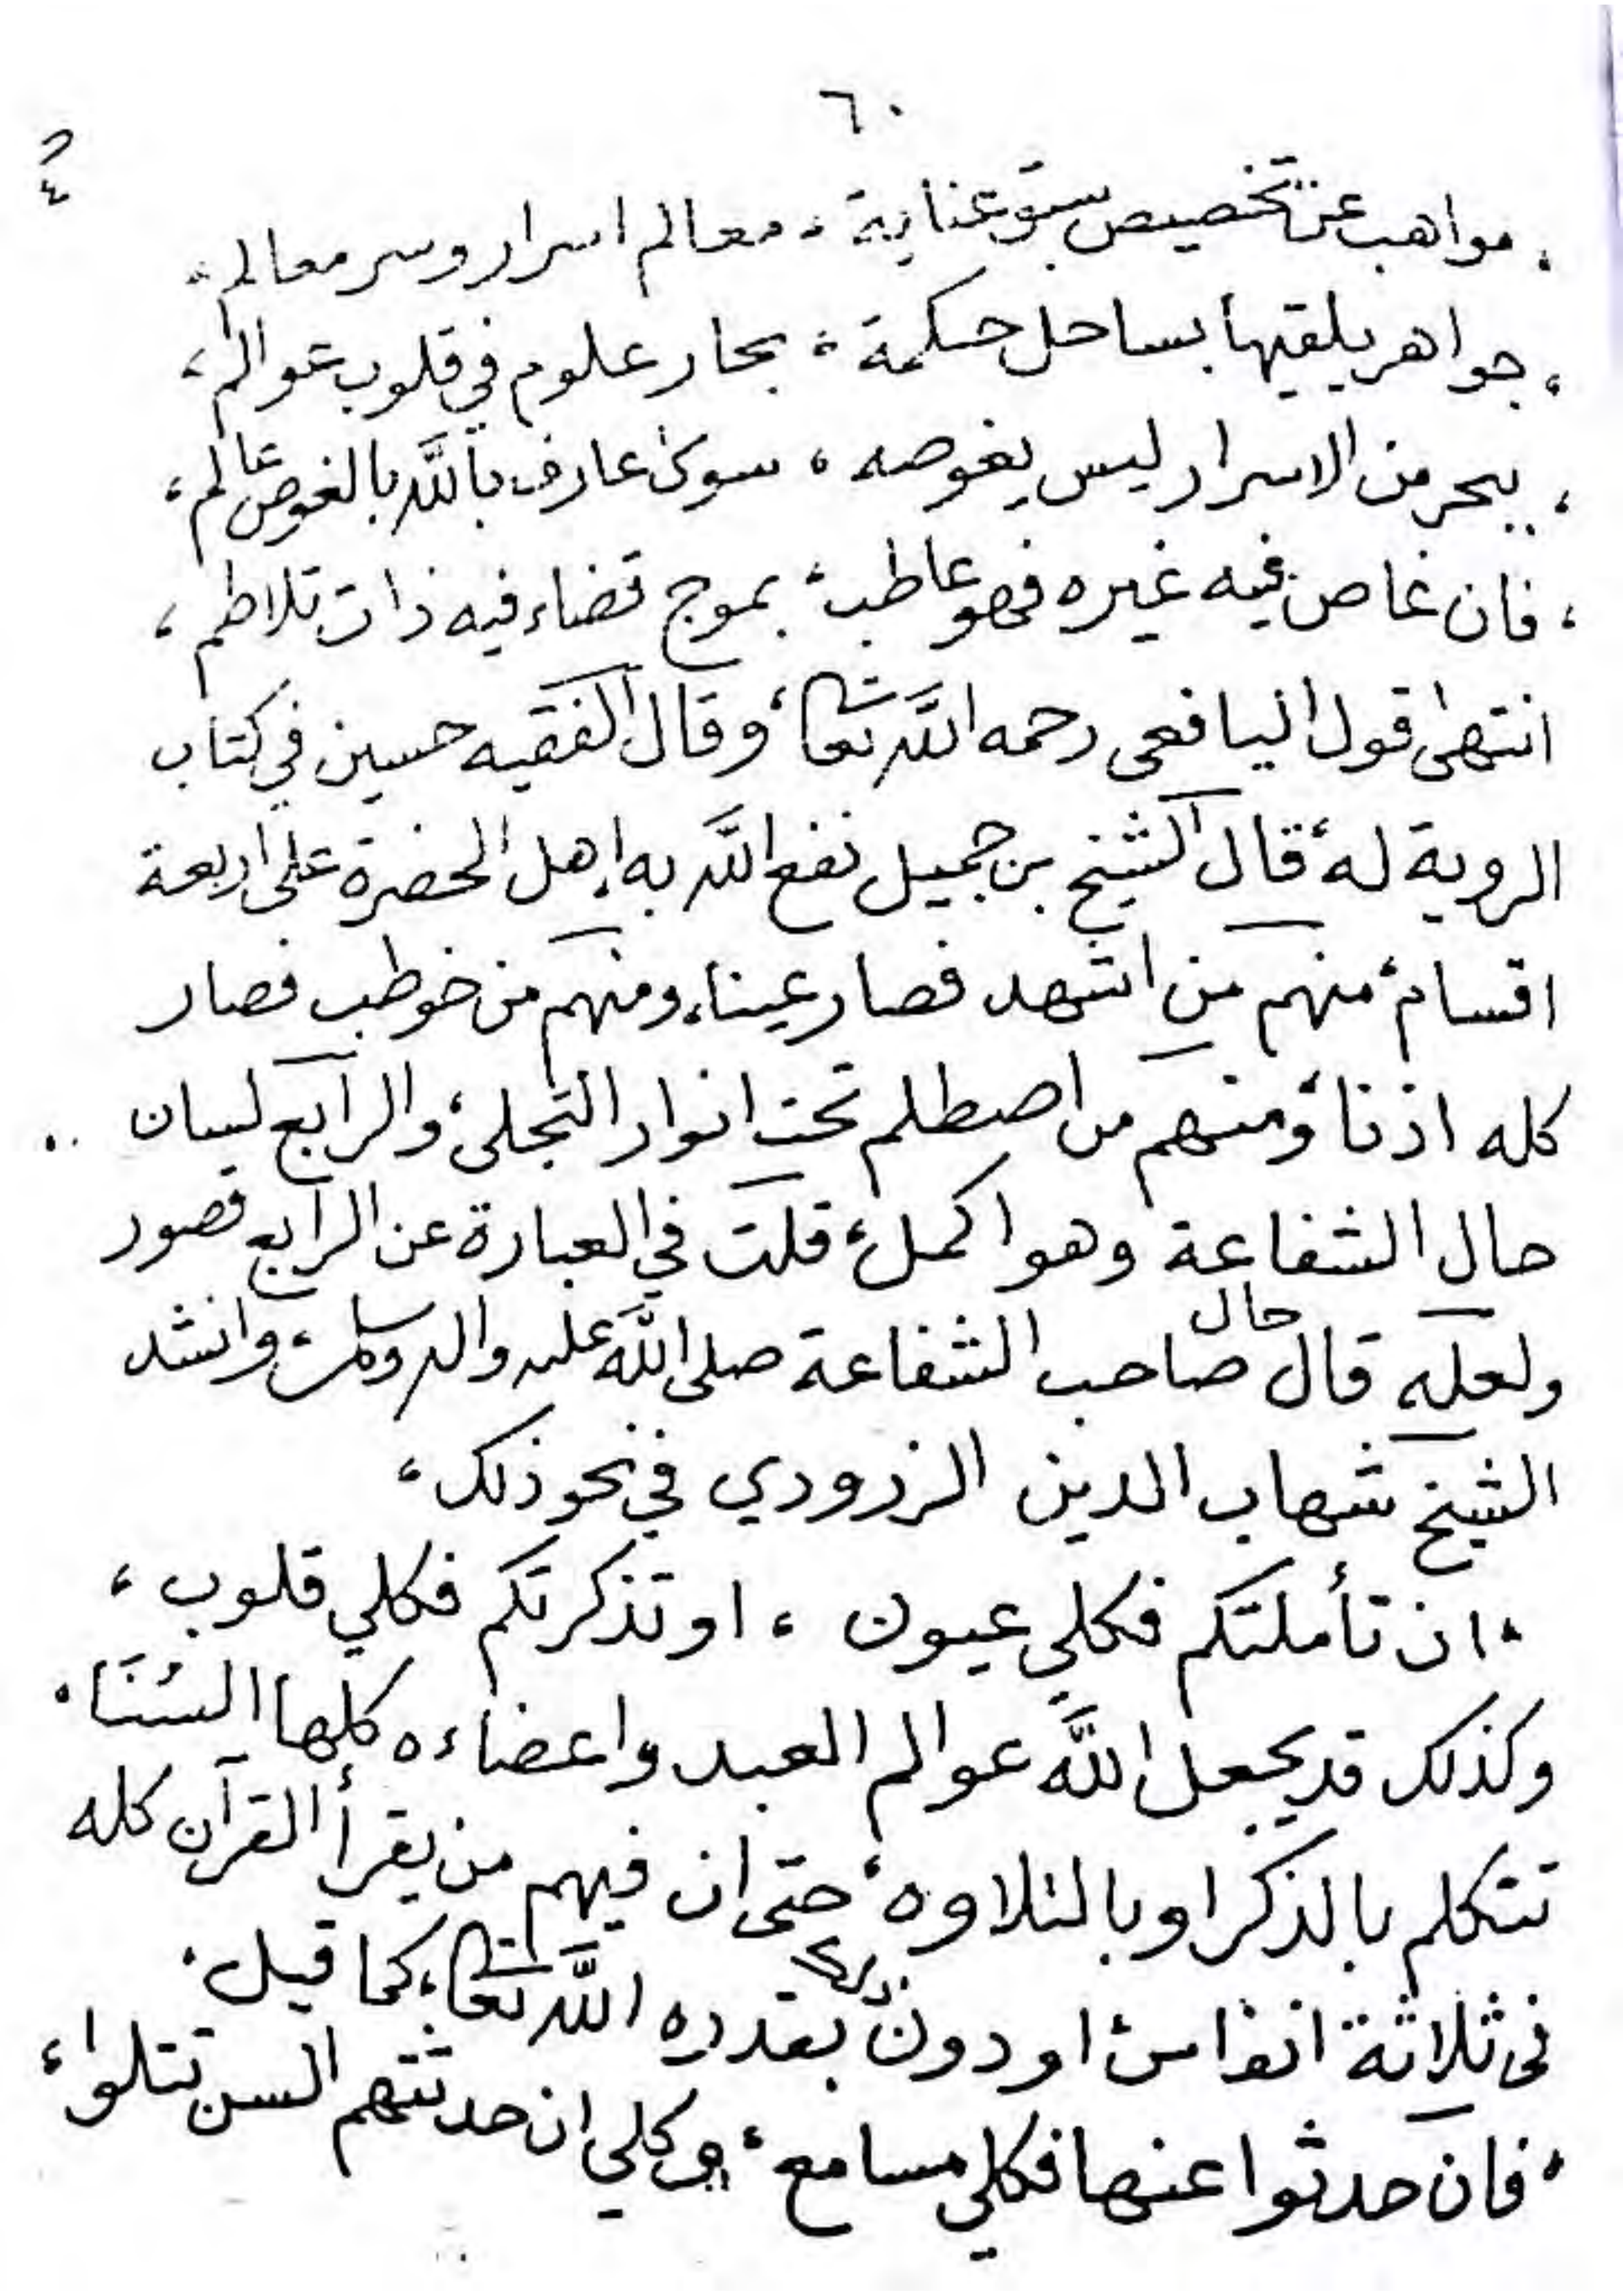 ٦٠
، مواهب عن تخصيص سبق عناية ، معالم اسرار وسر معالم ،
، جواهر يلقيها بساحل حكمة ، بحار علوم في قلوب عوالم ،
، ببحر من الاسرار ليس يغوصه ، سوى عارف باللّه بالغوص عالم ،
، فان غاص فيه غيره فهو عاطب ، بموج قضاء فيه ذات تلاطم ،
انتهى قول اليافعى رحمه اللّه تعا ، وقال الفقيه حسين في كتاب
الروية له ، قال الشيخ بن جميل نفع اللّه به اهل الحضرة على اربعة
اقسام ، منهم من اشهد فصار عينا ، ومنهم من خوطب فصار
كله اذنا ، ومنهم من اصطلم تحت انوار التجلى ، والرابع لسان ..
حال الشفاعة وهو اكمل ، قلت في العبارة عن الرابع قصور
ولعله قال حال صاحب الشفاعة صلى اللّه عليه واله وسلم ، وانشد
الشيخ شهاب الدين الزرودي في نحو ذلك ،
، ان تأملتكم فكلي عيون ، او تذكرتكم فكلي قلوب ،
وكذلك قد يجعل اللّه عوالم العبد واعضاءه كلها السُنَا .
تتكلم بالذكر او بالتلاوه ، حتى ان فيهم من يقرأ القرآن كله
فى ثلاثة انفاس ، او دون بقدره اللّه تعا ، كما قيل .
، فان حدثوا عنها فكلي مسامع ، وكلي ان حدثتهم السن تتلوا ،